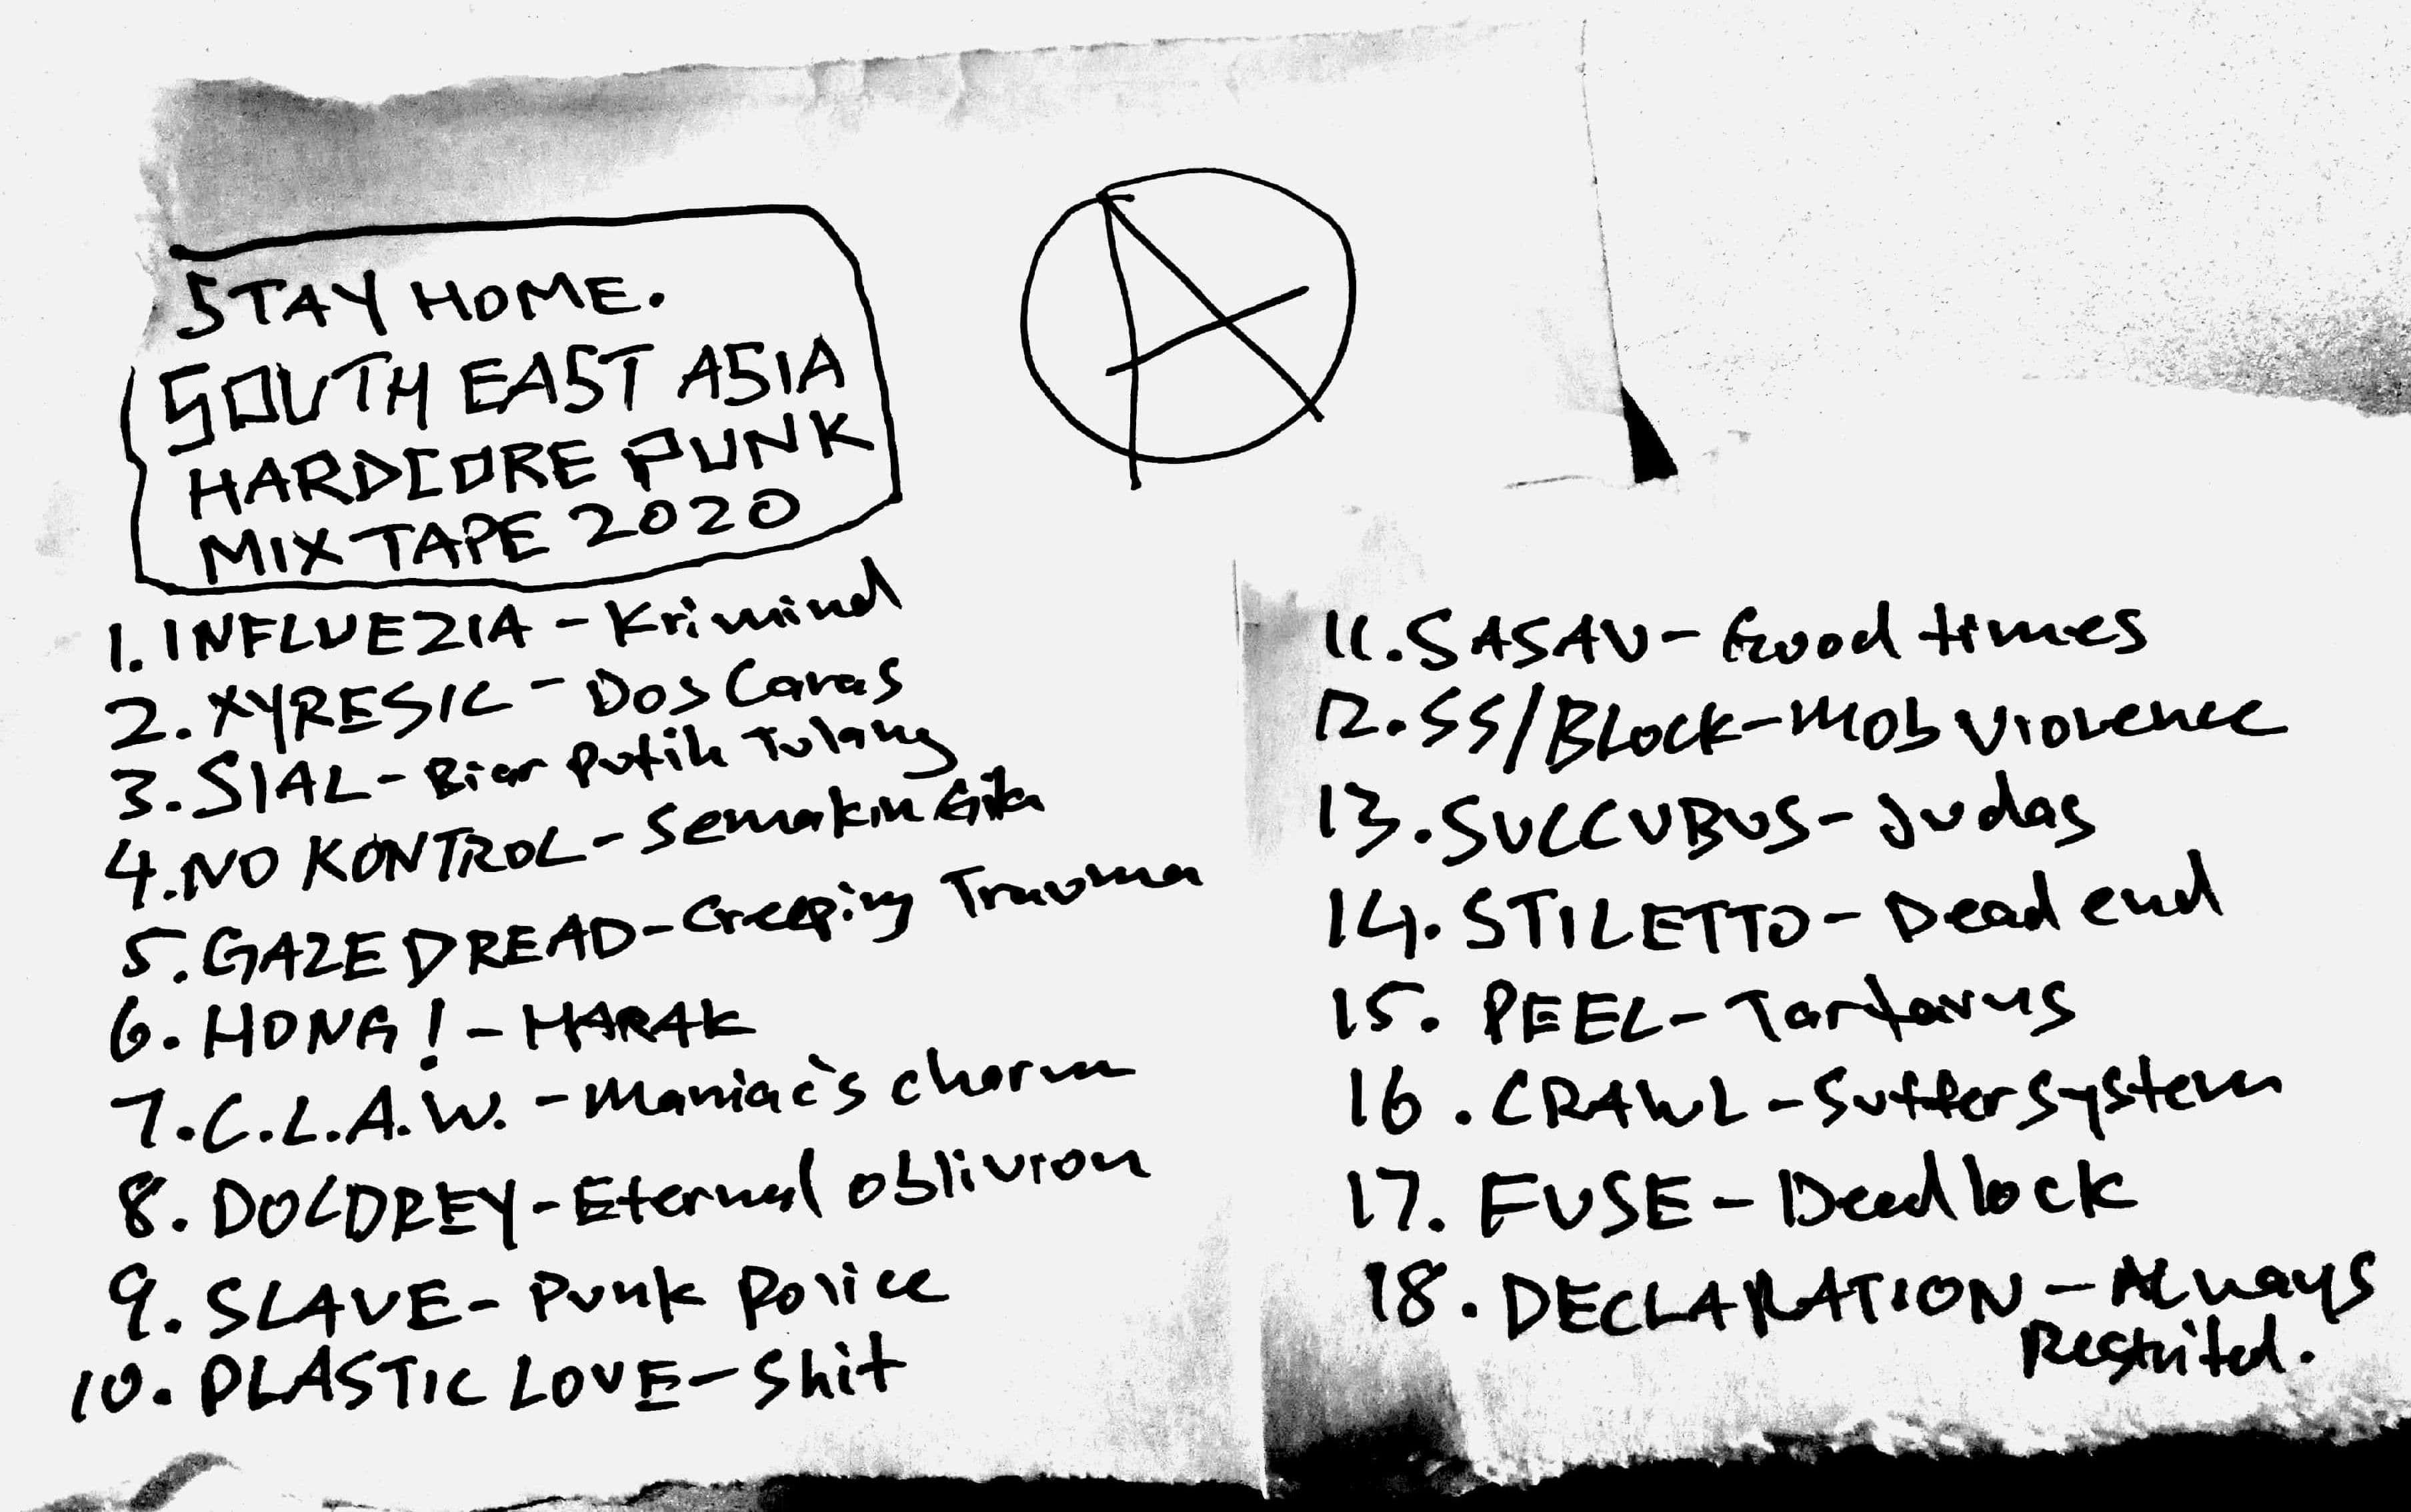 STAY HOME.
SOUTH EAST ASIA
HARDCORE PUNK
MIX TAPE 2020
1. INFLUEZIA - Kriminal
2. XYRESIC - Dos Caras
3. SIAL - Biar Putih Tulang
4. NO KONTROL - Semakin Gila
5. GAZE DREAD - Creeping Trauma
6. HONG! - HARAK
7. C.L.A.W. - Maniac's charm
8. DOLDREY - Eternal oblivion
9. SLAVE - Punk Police
10. PLASTIC LOVE - Shit
11. SASAU - Good times
12. SS/BLOCK - Mob Violence
13. SUCCUBUS - Judas
14. STILETTO - Dead end
15. PEEL - Tartarus
16. CRAWL - Suffer System
17. FUSE - Deadlock
18. DECLARATION - Always
Restrited.